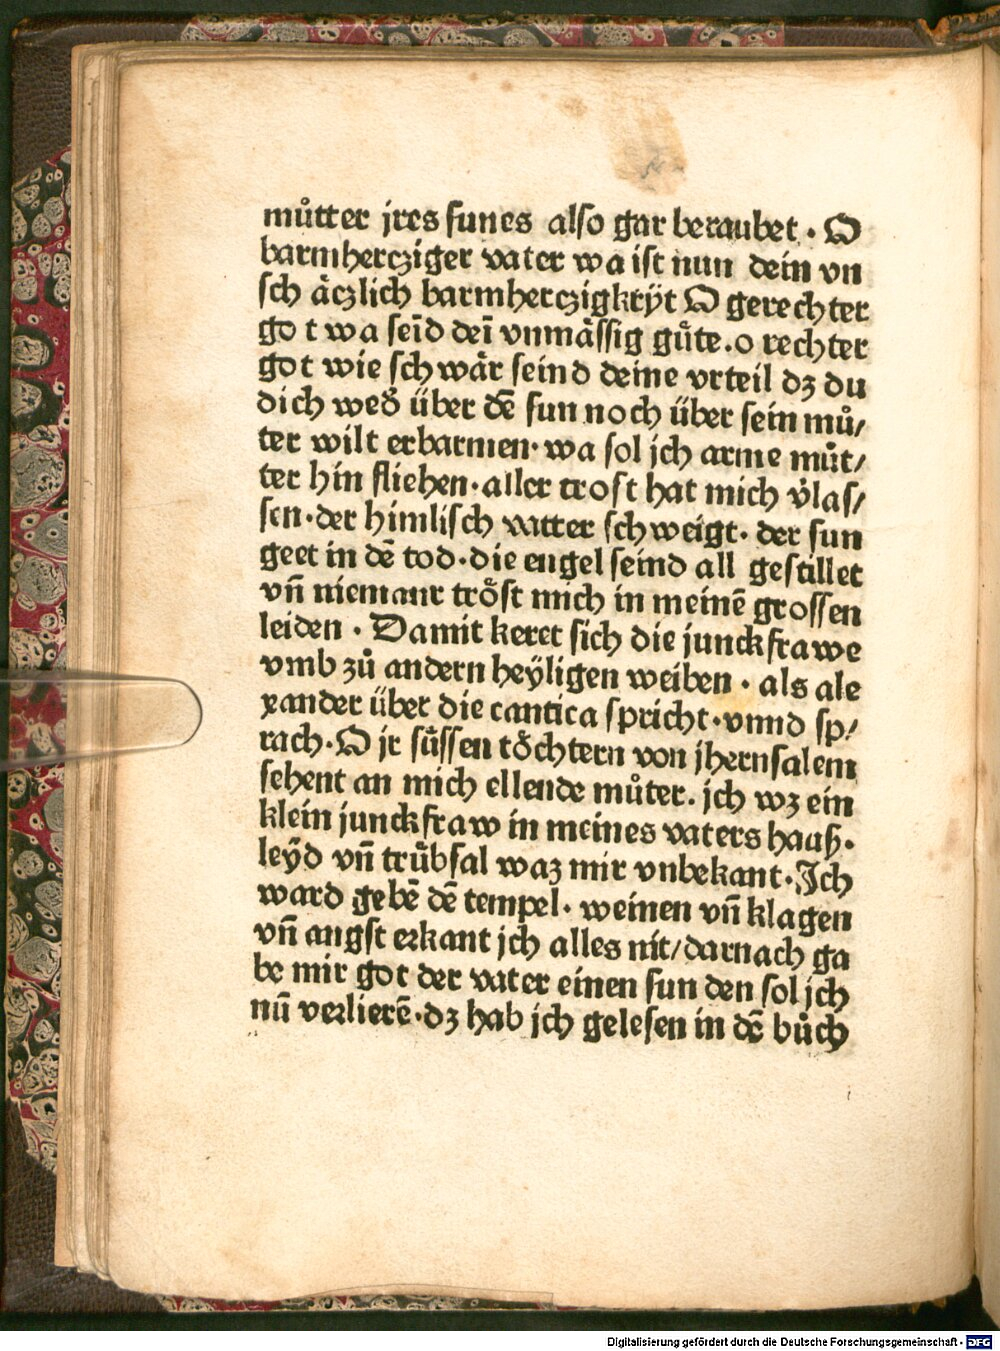 můtter jres sunes also gar beraubet · O
barmhercziger vater wa ist nun dein vn
sch äczlich barmherczigkeÿt O gerechter
go t wa seīd deī vnmässig gůte. o rechter
got wie schwär seind deine vrteil dz du
dich wed̄ über dē sun noch über sein můͦ/
ter wilt erbarmen· wa sol jch arme můt/
ter hin fliehen· aller trost hat mich v̓las/
sen· der himlisch vatter schweigt· der sun
geet in dē tod· die engel seind all gestillet
vn̄ niemant tröst mich in meinē grossen
leiden · Damit keret sich die junckfrawe
vmb zů andern heÿligen weiben · als ale
xander über die cantica spricht· vnnd sp/
rach· O jr süssen töchtern von jherusalem
sehent an mich ellende můter. jch wz ein
klein junckfraw in meines vaters hauß·
leÿd vn̄ trůbsal waz mir vnbekant· Jch
ward gebē dē tempel· weinen vn̄ klagen
vn̄ angst erkant jch alles nit/ darnach ga
be mir got der vater einen sun den sol jch
nū verlierē· dz hab jch gelesen in dē bůch
Digitalisierung gefördert durch die Deutsche Forschungsgemeinschaft - DFG